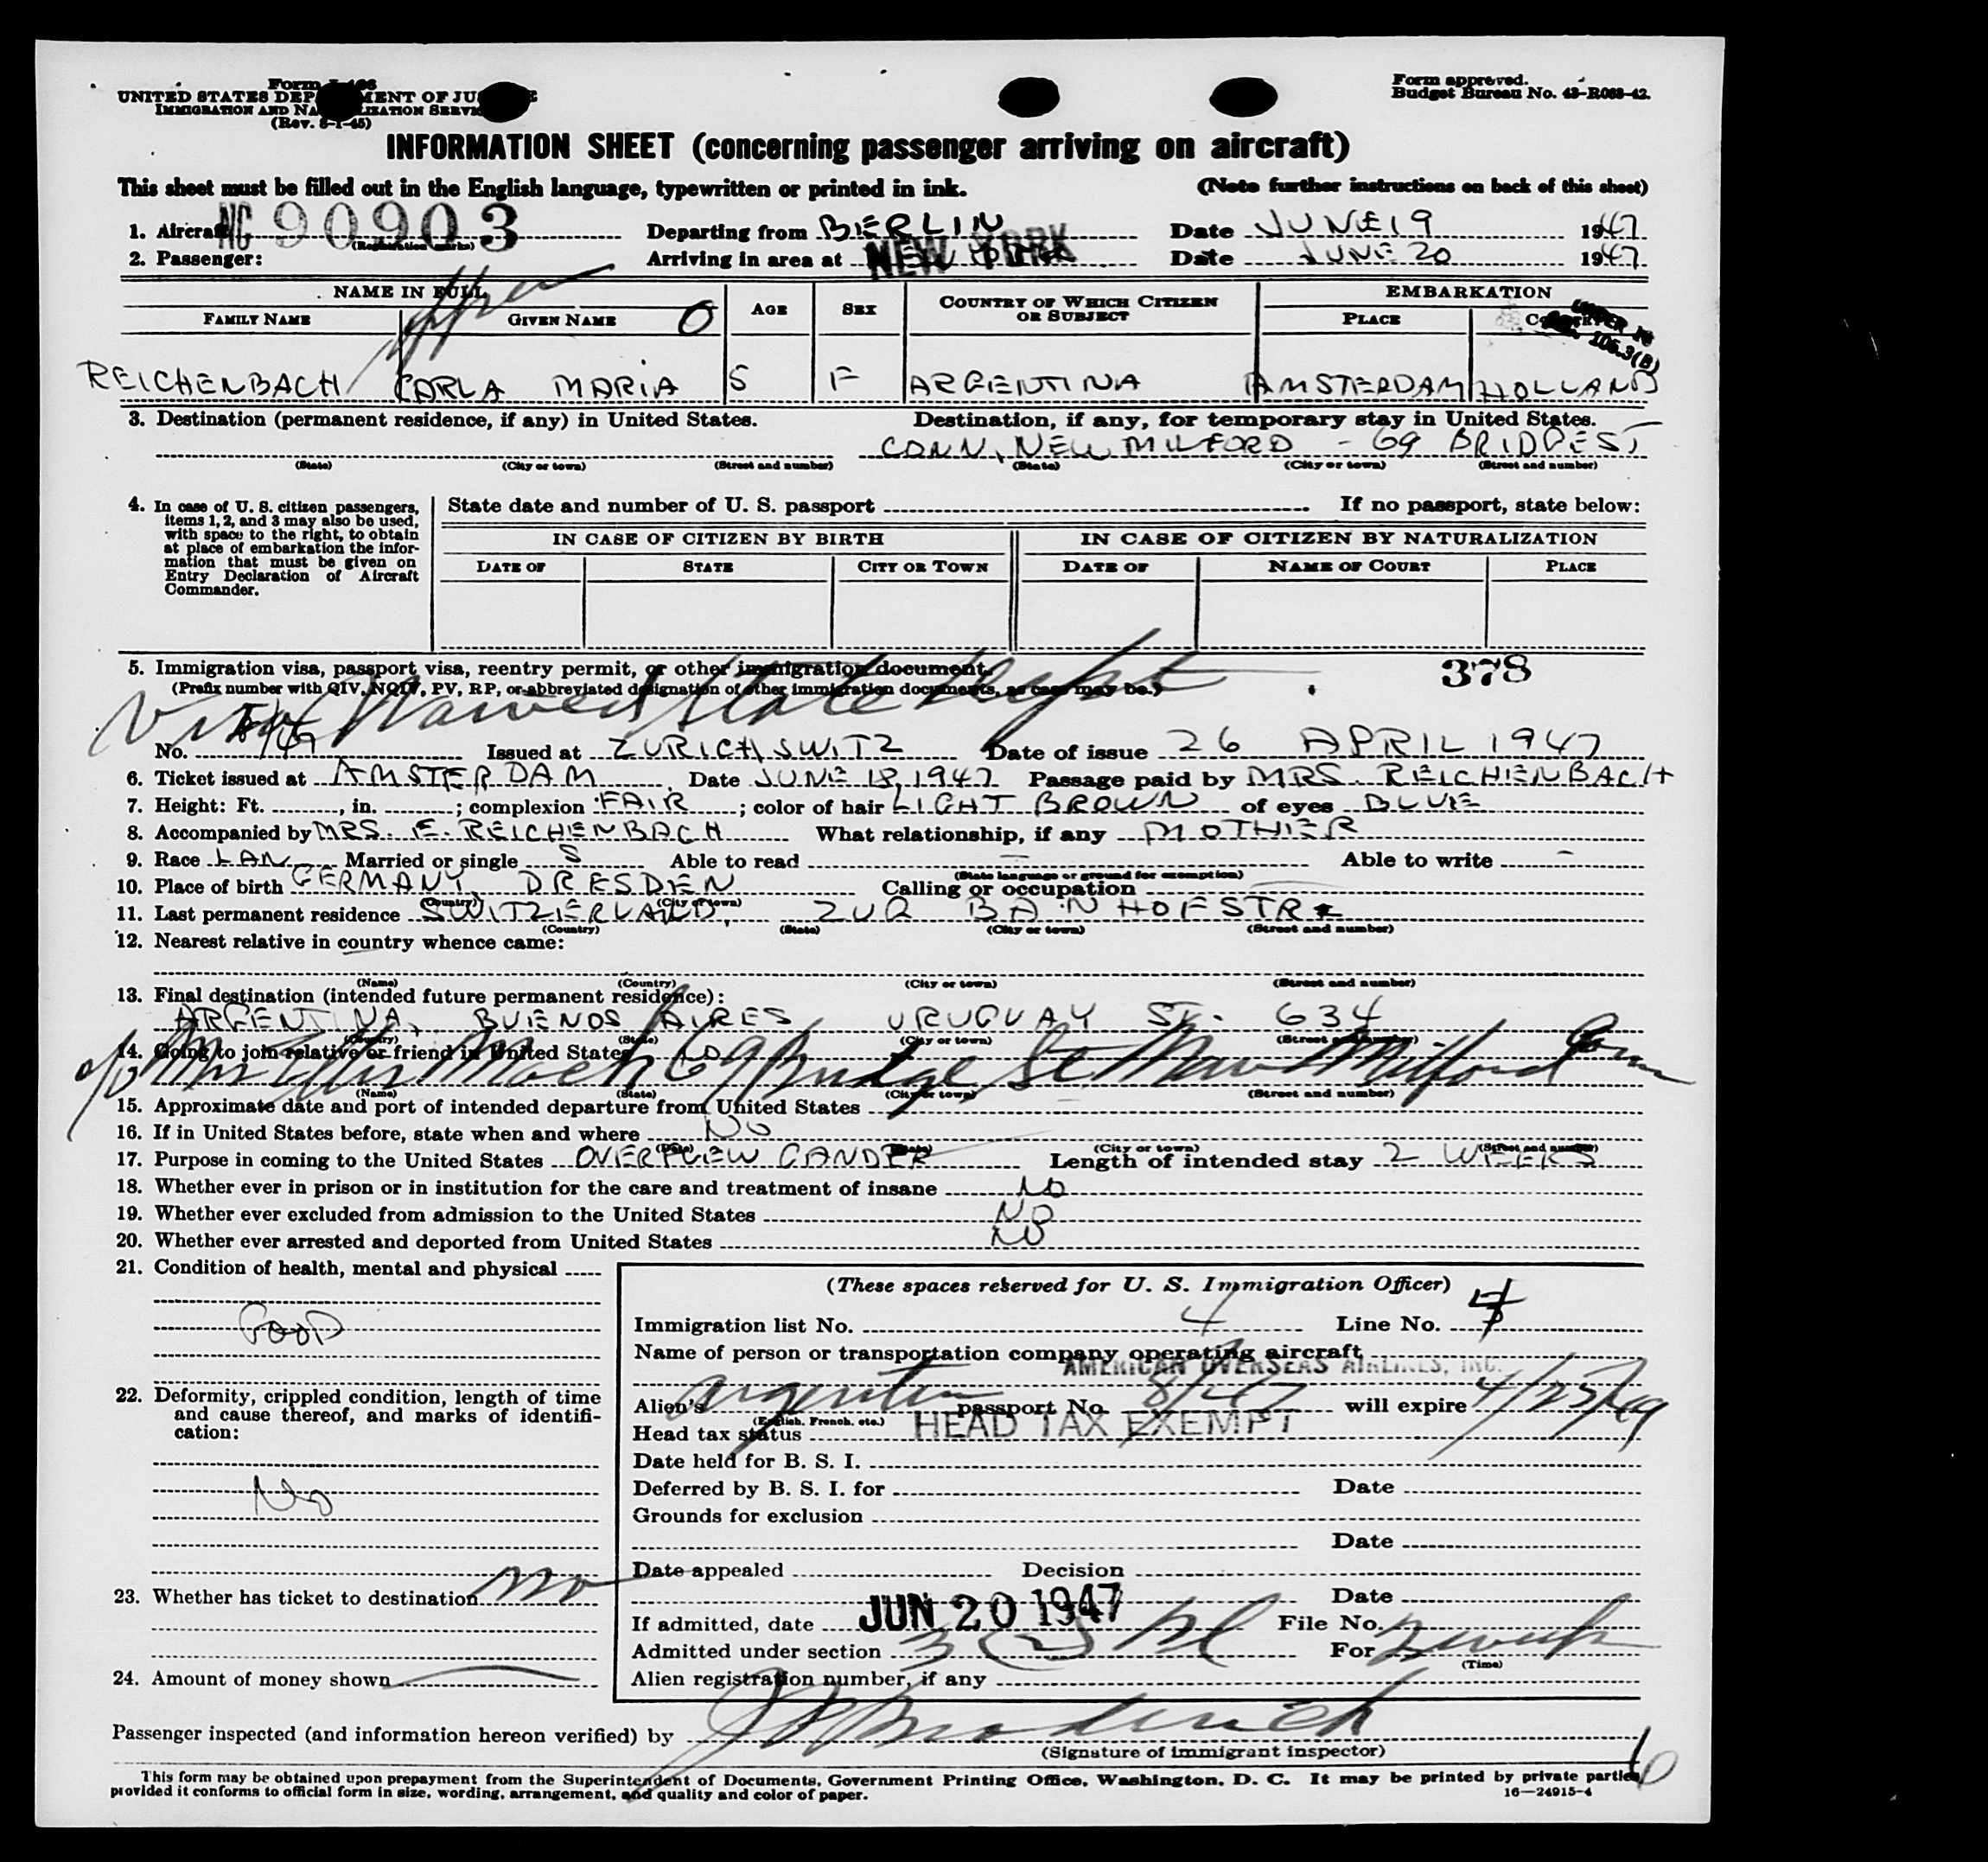 Form I-466
UNITED STATES DEPARTMENT OF JUSTICE
IMMIGRATION AND NATURALIZATION SERVICE
(Rev. 3-1-45)
Form approved.
Budget Bureau No. 43-R063-42.
INFORMATION SHEET (concerning passenger arriving on aircraft)
This sheet must be filled out in the English language, typewritten or printed in ink. (Note further instructions on back of this sheet)
1. Aircraft NC 90903 (Registration marks) Departing from BERLIN Date JUNE 19 1947
2. Passenger: Arriving in area at NEW YORK Date JUNE 20 1947
NAME IN FULL AGE SEX COUNTRY OF WHICH CITIZEN OR SUBJECT EMBARKATION
FAMILY NAME GIVEN NAME O PLACE COUNTRY
REICHENBACH CARLA MARIA 5 F ARGENTINA AMSTERDAM HOLLAND
3. Destination (permanent residence, if any) in United States. Destination, if any, for temporary stay in United States.
CONN, NEW MILFORD - 69 BRIDGEST
(State) (City or town) (Street and number) (State) (City or town) (Street and number)
4. In case of U. S. citizen passengers, items 1, 2, and 3 may also be used, with space to the right, to obtain at place of embarkation the information that must be given on Entry Declaration of Aircraft Commander.
State date and number of U. S. passport If no passport, state below:
IN CASE OF CITIZEN BY BIRTH IN CASE OF CITIZEN BY NATURALIZATION
DATE OF STATE CITY OR TOWN DATE OF NAME OF COURT PLACE
5. Immigration visa, passport visa, reentry permit, or other immigration document. 378
(Prefix number with QIV, NQIV, PV, RP, or abbreviated designation of other immigration documents, as case may be.)
Visa Waived State Dept
No. Issued at ZURICH SWITZ Date of issue 26 APRIL 1947
6. Ticket issued at AMSTERDAM Date JUNE 18, 1947 Passage paid by MRS. REICHENBACH
7. Height: Ft. , in. ; complexion FAIR ; color of hair LIGHT BROWN of eyes BLUE
8. Accompanied by MRS. E. REICHENBACH What relationship, if any MOTHER
9. Race LAN Married or single S Able to read - Able to write -
(State language or ground for exemption)
10. Place of birth GERMANY, DRESDEN Calling or occupation
(Country) (City or town)
11. Last permanent residence SWITZERLAND, ZUR BA'NHOFSTR
(Country) (State) (City or town) (Street and number)
12. Nearest relative in country whence came:
(Name) (Country) (City or town) (Street and number)
13. Final destination (intended future permanent residence):
ARGENTINA, BUENOS AIRES URUGUAY ST. 634
(Country) (State) (City or town) (Street and number)
14. Going to join relative or friend in United States NO
c/o Mrs Mach 69 Bridge St New Milford Conn
(Name) (State) (City or town) (Street and number)
15. Approximate date and port of intended departure from United States
16. If in United States before, state when and where NO
(Date) (State) (City or town) (Street and number)
17. Purpose in coming to the United States OVERFLEW GANDER Length of intended stay 2 WEEKS
18. Whether ever in prison or in institution for the care and treatment of insane NO
19. Whether ever excluded from admission to the United States NO
20. Whether ever arrested and deported from United States NO
21. Condition of health, mental and physical
GOOD
22. Deformity, crippled condition, length of time and cause thereof, and marks of identification:
No
23. Whether has ticket to destination no
24. Amount of money shown
(These spaces reserved for U. S. Immigration Officer)
Immigration list No. 4 Line No.
Name of person or transportation company operating aircraft
AMERICAN OVERSEAS AIRLINES, INC.
Alien's Argentine passport No. 8/47 will expire 4/25/49
(English, French, etc.)
Head tax status HEAD TAX EXEMPT
Date held for B. S. I.
Deferred by B. S. I. for Date
Grounds for exclusion
Date
Date appealed Decision
Date
If admitted, date JUN 20 1947 File No.
Admitted under section 3(2) For 2 weeks
(Time)
Alien registration number, if any
Passenger inspected (and information hereon verified) by
(Signature of immigrant inspector)
This form may be obtained upon prepayment from the Superintendent of Documents, Government Printing Office, Washington, D. C. It may be printed by private parties
provided it conforms to official form in size, wording, arrangement, and quality and color of paper. 16—24915-4